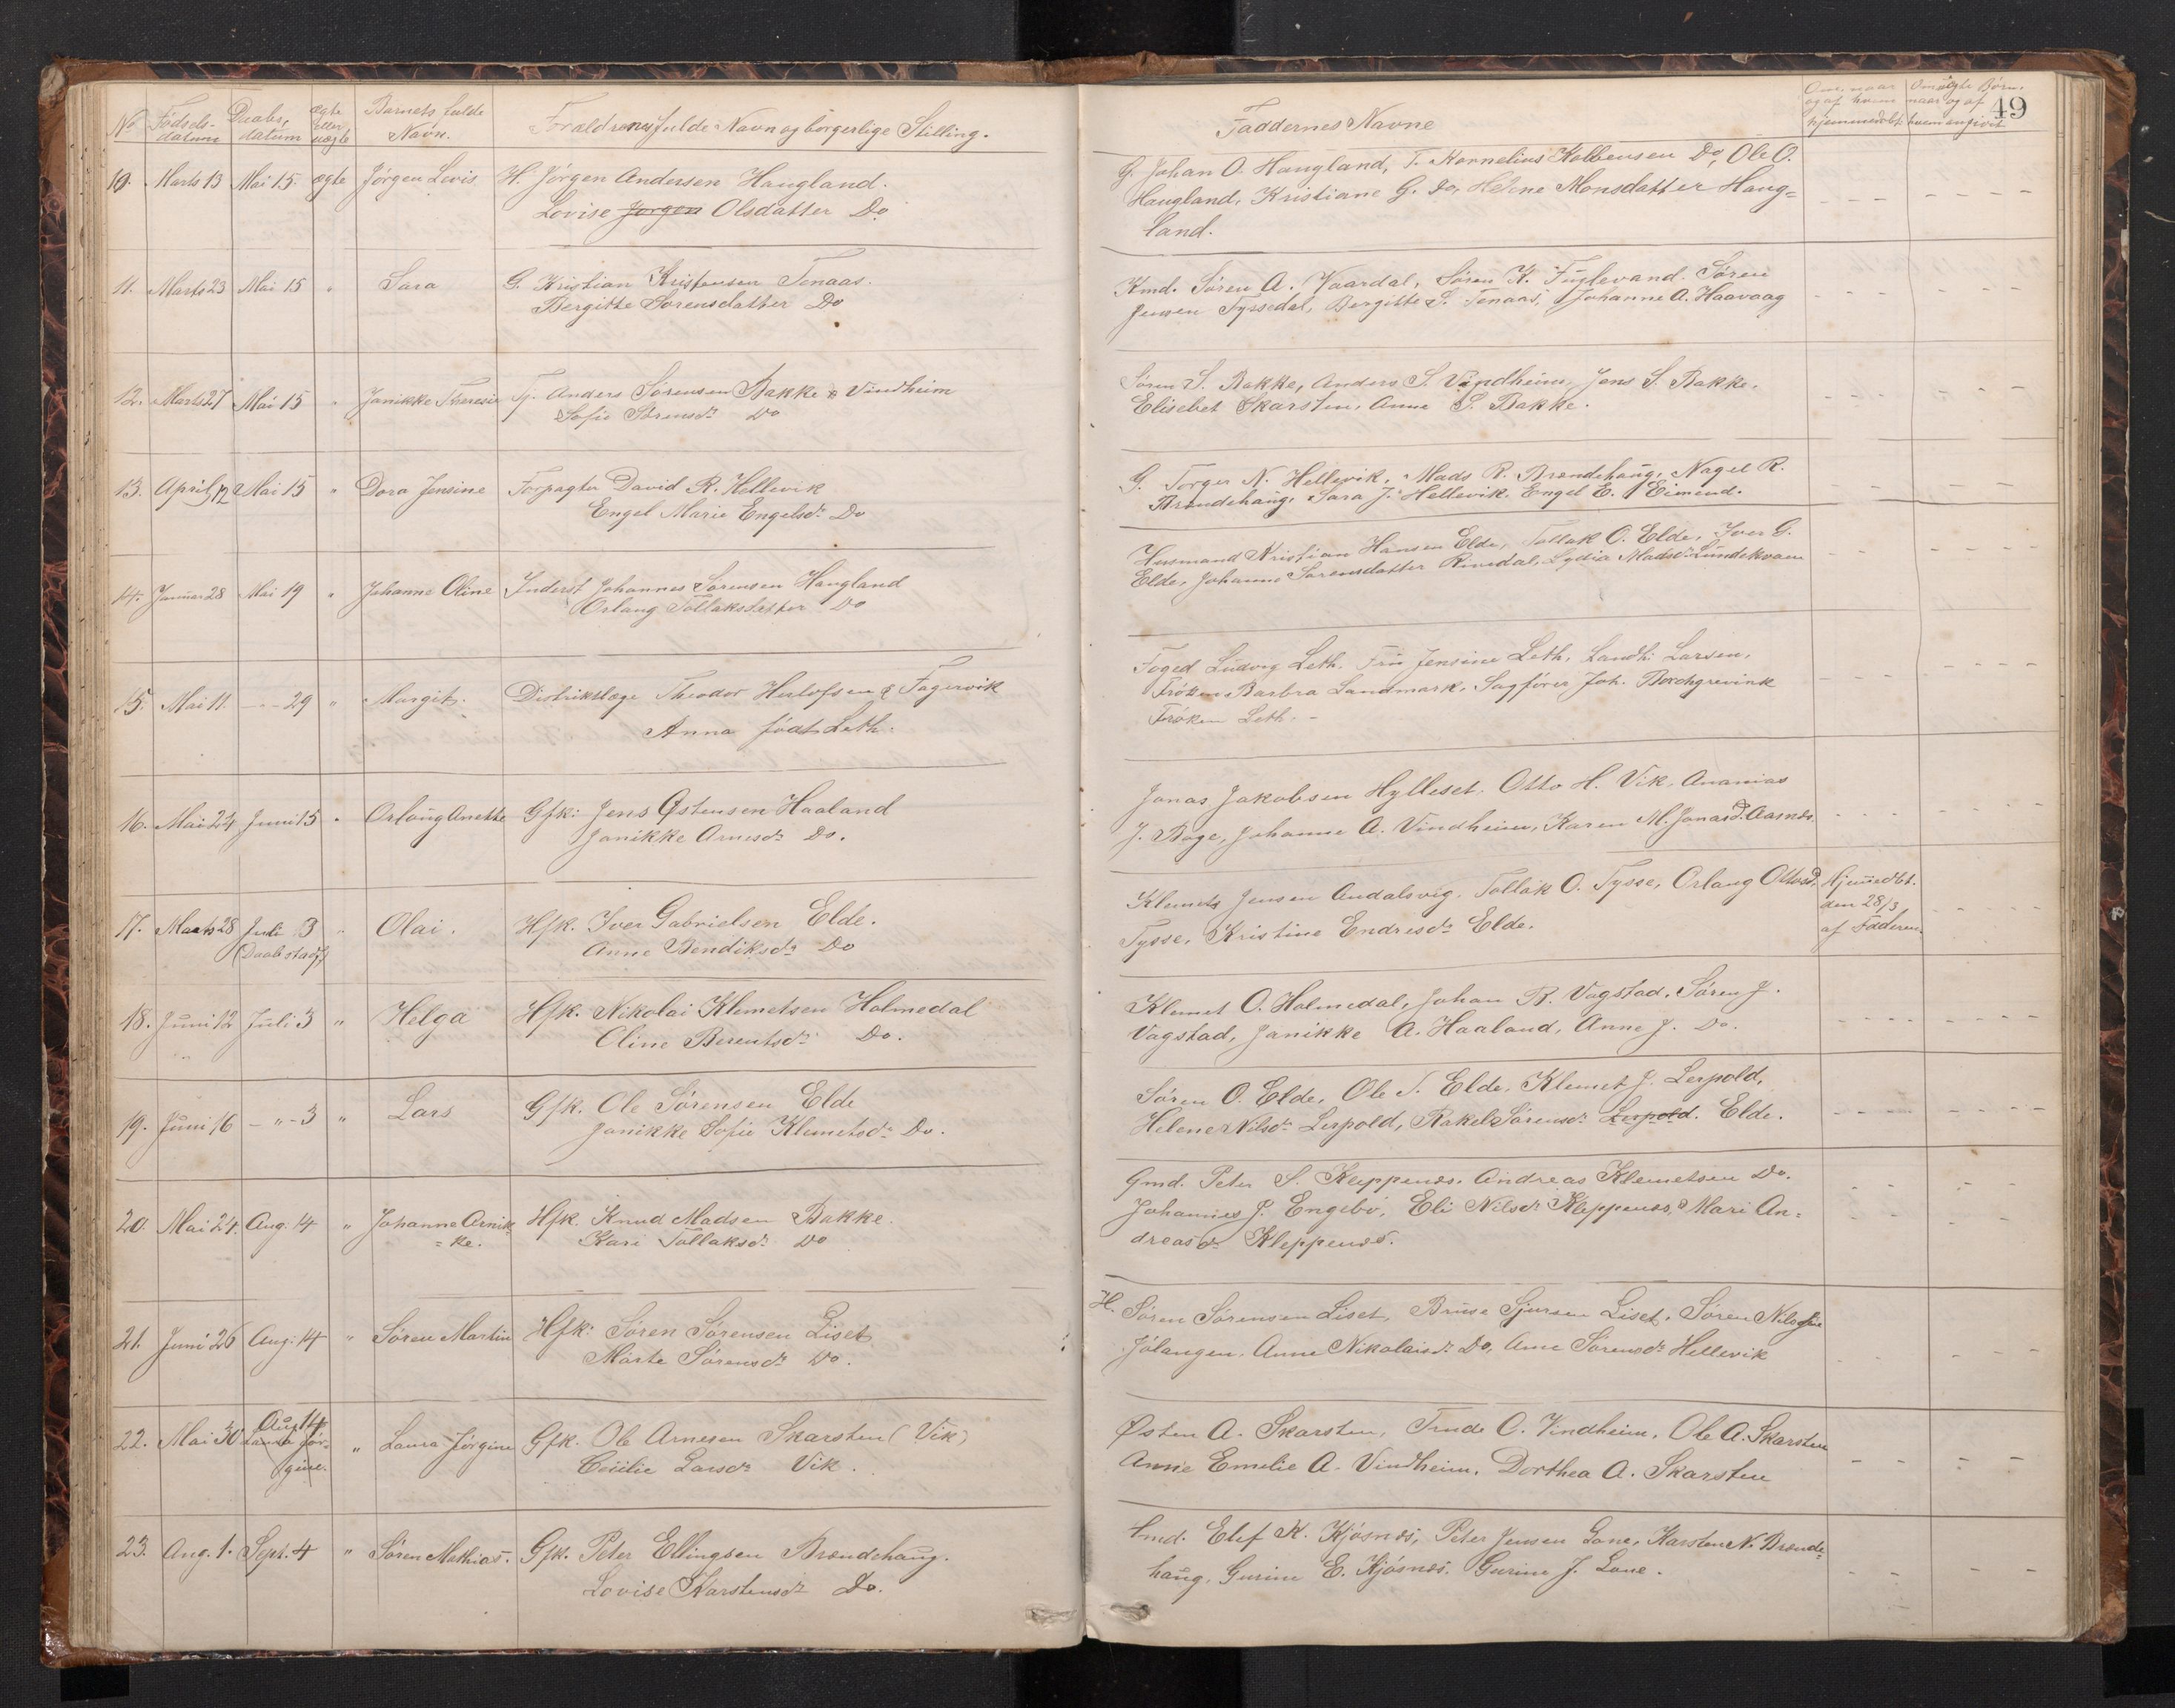 No Fødsels-datum Daabs-datum ægte eller uægte Barnets fulde Navn. Forældrenes fulde Navn og borgerlige Stilling.
Faddernes Navne
Om, naar og af hvem hjemmedøbt. Om uægte Børn, naar og af hvem angivet
49
10. Marts 13 Mai 15. ægte Jørgen Lovis H. Jørgen Andersen Haugland.
Lovise Jørgen Olsdatter Do
G. Johan O. Haugland, T. Kornelius Kolbensen Do, Ole O.
Haugland, Kristiane G. Do, Helene Monsdatter Haug=
land.
11. Marts 23 Mai 15 " Sara G. Kristian Kristensen Tenaas.
Bergitte Sørensdatter Do
Kmd. Søren A. Vaardal, Søren K. Fuglevand. Søren
Jensen Tyssedal, Bergitte S. Tenaas, Johanne A. Haavaag
12. Marts 27 Mai 15 " Janikke Theresie Tj. Anders Sørensen Bakke & Vindheim
Sofie Sørensdr Do
Søren S. Bakke, Anders S. Vindheim, Jens S. Bakke.
Elisebet Skarsten, Anne S. Bakke.
13. April 12 Mai 15 " Dora Jensine Forpagter David R. Hellevik
Engel Marie Engelsdr Do
G. Torger N. Hellevik, Mads R. Brændehaug, Nagel R.
Brændehaug, Sara J. Hellevik. Engel E. Eimend.
14. Januar 28 Mai 19 " Johanne Oline Inderst Johannes Sørensen Haugland
Orlaug Tollaksdatter Do
Husmand Kristian Hansen Elde, Tollak O. Elde, Iver G.
Elde, Johanne Sørensdatter Rivedal, Lydia Madsdr Lundekvam
15. Mai 11. - - 29 " Margit. Distriktslæge Theodor Herlofsen & Fagervik
Anna født Leth.
Foged Ludvig Leth. Fru Jensine Leth, Landh. Larsen,
Frøken Barbra Landmark, Sagfører Joh. Borchgrevink
Frøken Leth. -
16. Mai 24 Juni 15 " Orlaug Anette Gfk: Jens Østensen Haaland
Janikke Arnesdr Do.
Jonas Jakobsen Hylleset. Otto H. Vik, Ananias
J. Bage, Johanne A. Vindheim, Karen M. Jonasd. Aarnes.
17. Marts 28 Juli 3 " Olai. Hfk. Iver Gabrielsen Elde.
(Daabstadf.) Anne Bendiksdr Do
Klemets Jensen Andalsvig. Tollak O. Tysse, Orlaug Ottosd.
Tysse, Kristine Endresdr Elde.
Hjemmedbt.
den 28/3
af Faderen.
18. Juni 12 Juli 3 " Helga Hfk. Nikolai Klemetsen Holmedal
Oline Berentsdr Do.
Klemet O. Holmedal, Johan R. Vagstad, Søren J.
Vagstad, Janikke A. Haaland, Anne J. Do.
19. Juni 16 - " - 3 " Lars Gfk. Ole Sørensen Elde
Janikke Sofie Klemetsdr Do.
Søren O. Elde, Ole S. Elde, Klemet J. Lerpold,
Helene Nilsdr Lerpold, Rakel Sørensdr Lerpold. Elde.
20. Mai 24. Aug. 14 " Johanne Arnik= Hfk. Knud Madsen Bakke.
=ke. Kari Tollaksdr Do
Gmd. Peter S. Kleppenes. Andreas Klemetsen Do.
Johannes J. Engebø, Eli Nilsdr Kleppenes, Mari An=
dreasdr Kleppenes.
21. Juni 26 Aug. 14 " Søren Martin Hfk: Søren Sørensen Liset
Marte Sørensdr Do.
H. Søren Sørensen Liset, Bruse Sjursen Liset, Søren Nilsen
Jølangen, Anne Nikolaisdr Do, Ane Sørensdr Hellevik
22. Mai 30 Aug 14 " Laura Jørgine Gfk. Ole Arnesen Skarsten (Vik)
Laura Jør=
gine. Cecilie Larsdr Vik.
Østen A. Skarsten, Trude O. Vindheim, Ole A. Skarsten
Anne Emelie A. Vindheim, Dorthea A. Skarsten
23. Aug. 1. Sept. 4 " Søren Mathias. Gfk. Peter Ellingsen Brændehaug.
Lovise Karstensdr Do.
Gmd. Elef K. Kjøsnes, Peter Jensen Lone, Karsten N. Brænde=
haug, Gurine E. Kjøsnes. Gurine J. Lone.